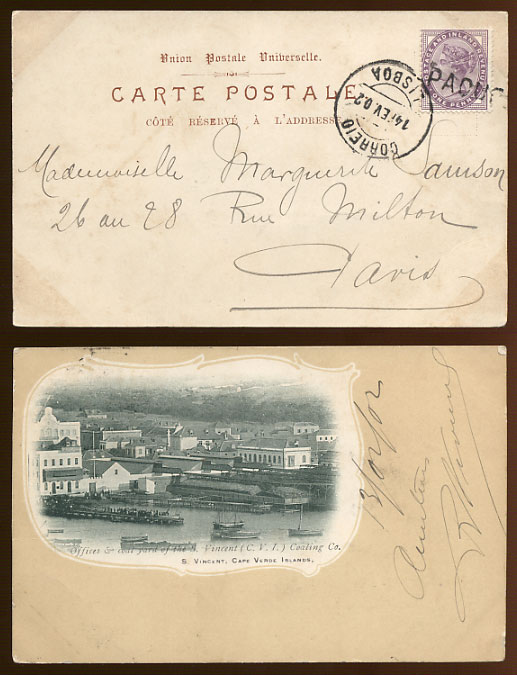 Union Postale Universelle.
POSTAGE AND INLAND REVENUE
ONE PENNY
PAQUE
CARTE POSTALE
CORREIO
14 FEV 02
LISBOA
CÔTÉ RÉSERVÉ À L'ADRESSE
Mademoiselle Marguerite Samson
26 au 28 Rue Milton
Paris
Offices & coal yard of the S. Vincent (C. V. I.) Coaling Co.
S. VINCENT, CAPE VERDE ISLANDS.
13/02/02